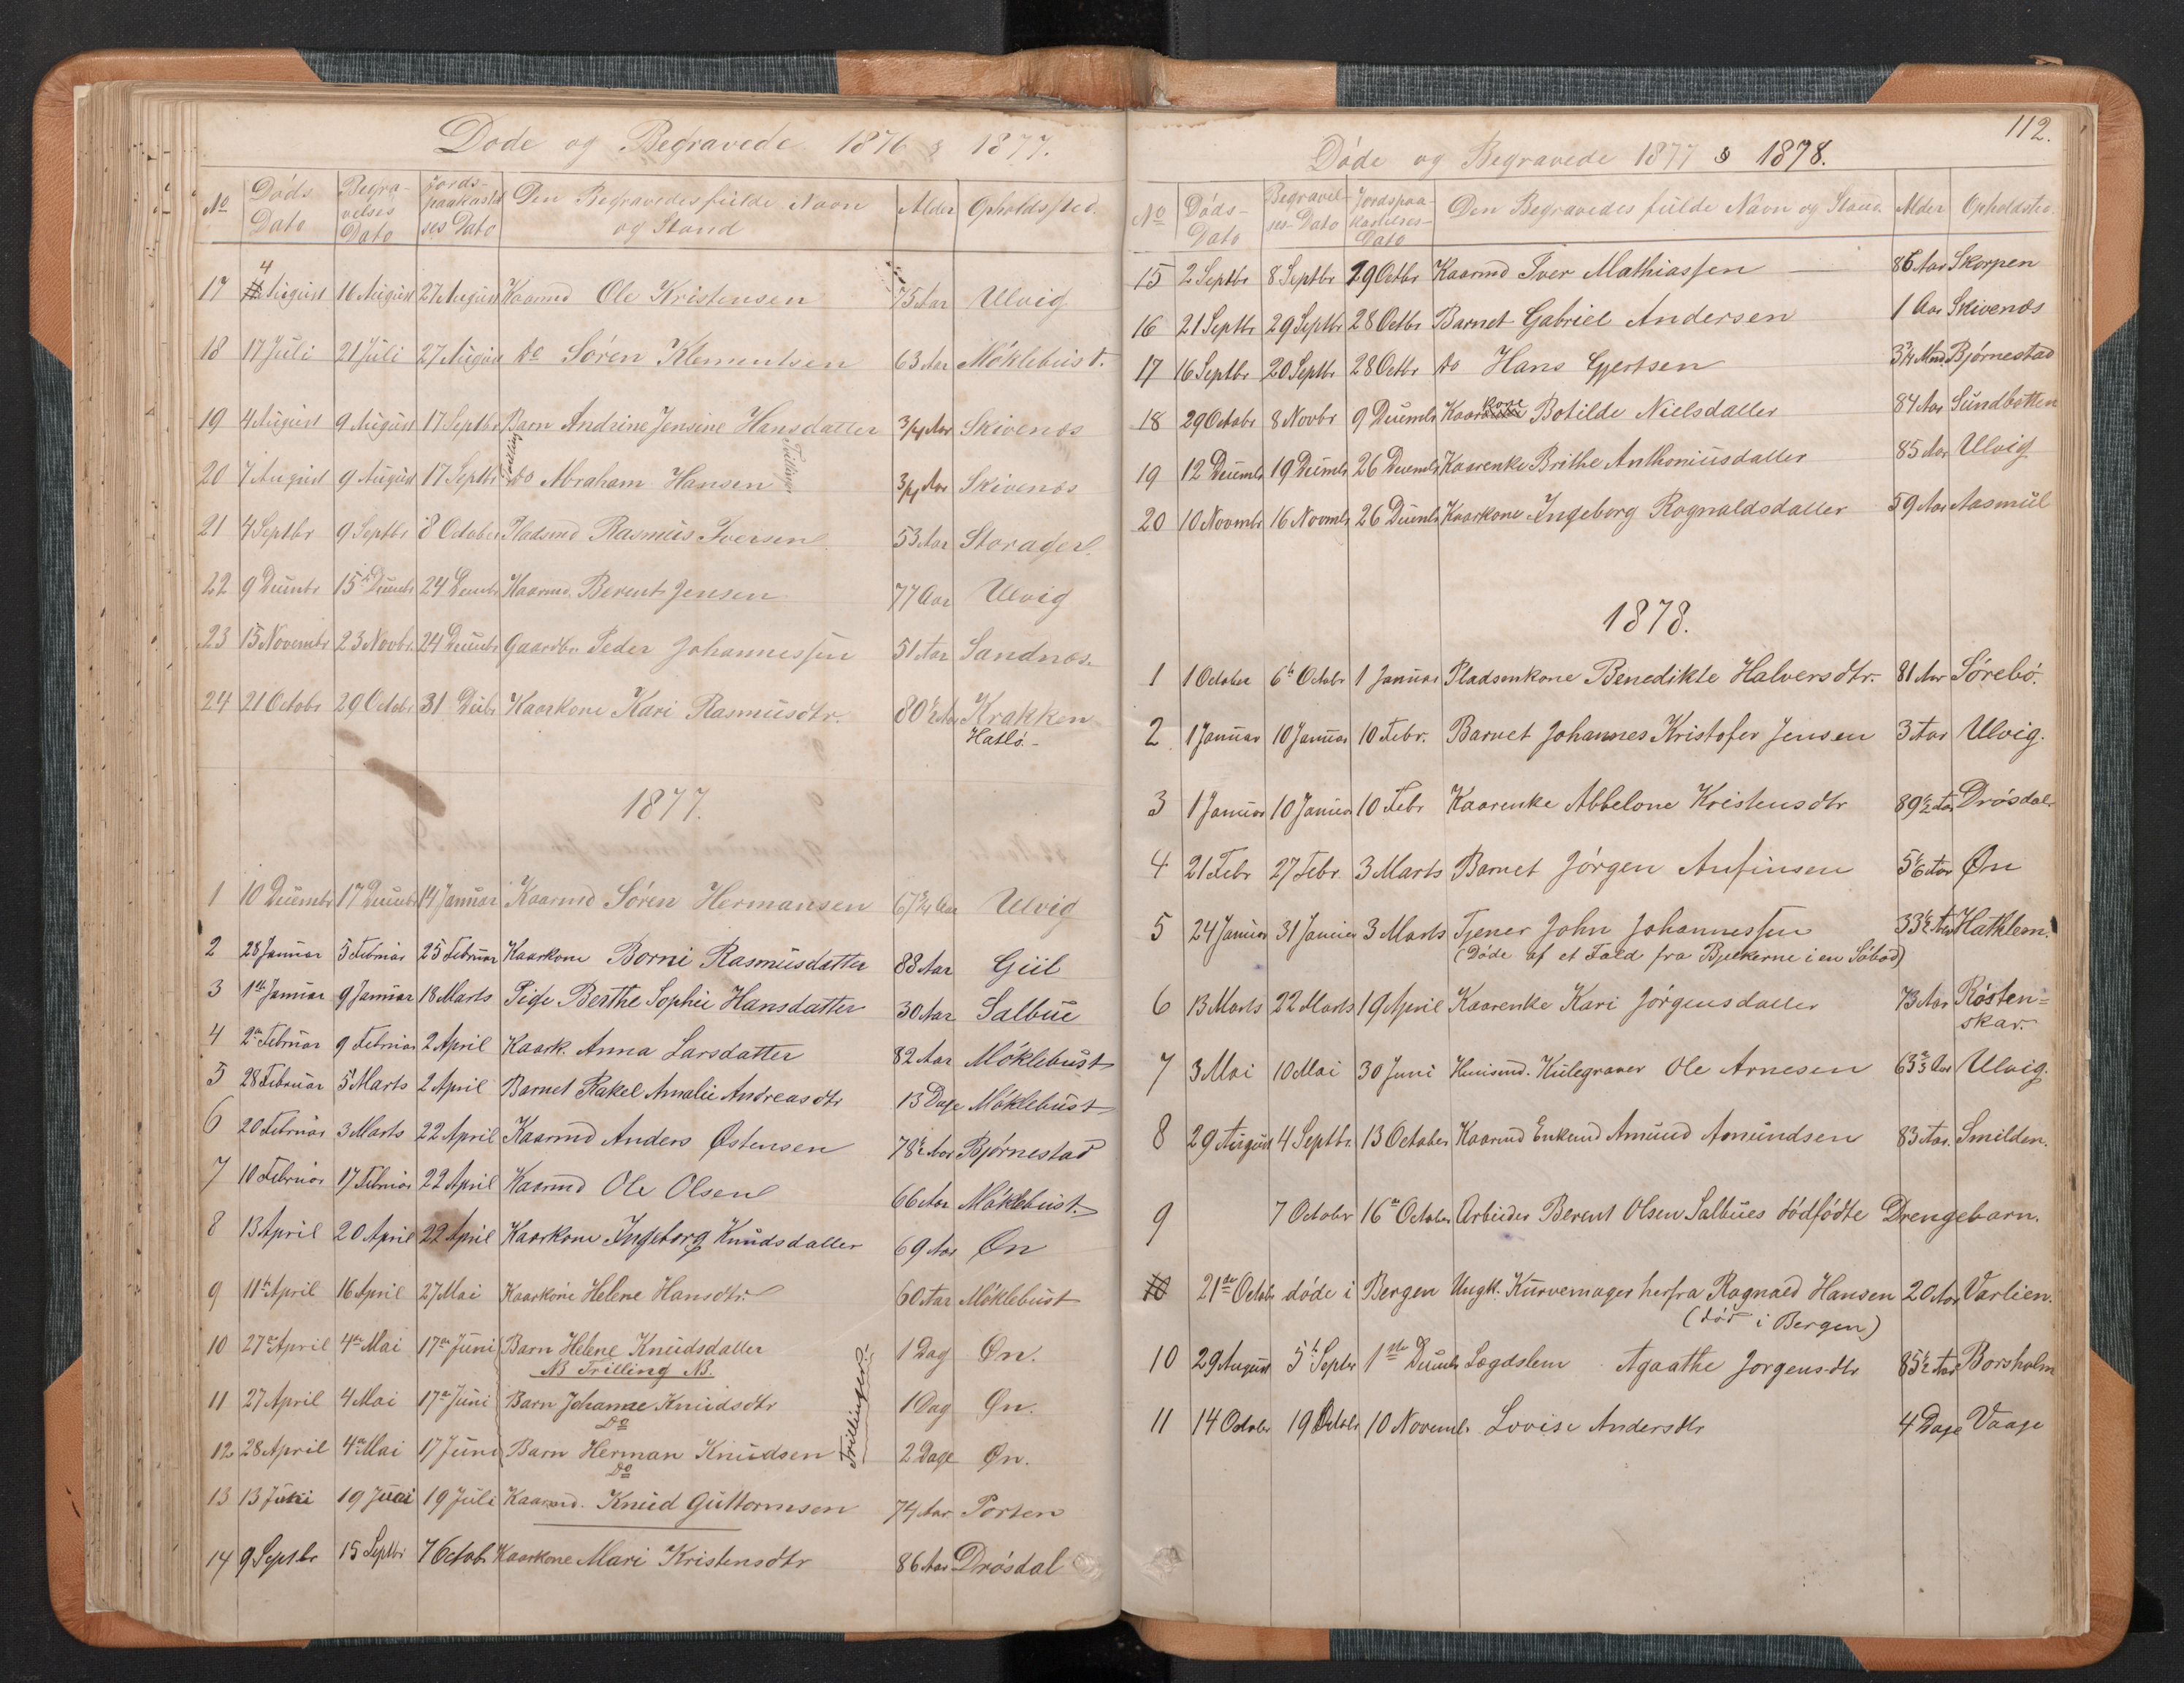 Døde og Begravede 1876 & 1877.
No Døds Dato Begravelses Dato Jordspaakastelses Dato Den Begravedes fulde Navn og Stand Alder Opholdssted.
17 4 August 16 August 27 August Kaarmd Ole Kristensen 75 Aar Ulvig
18 17 Juli 21 Juli 27 August Do Søren Klementsen 63 Aar Møklebust.
19 4 August 9 August 17 Septbr Barn Andrine Jensine Hansdatter 3/4 Aar Skivenæs
20 7 August 9 August 17 Septbr Do Abraham Hansen 3/4 Aar Skivenæs
Tvillinger
21 4 Septbr 9 Septbr 8 October Pladsmd Rasmus Iversen 53 Aar Storager
22 9 Decmbr 15 Decmbr 24 Decmbr Kaarmd. Berent Jensen 77 Aar Ulvig
23 15 Novembr 23 Novbr. 24 Decmbr Gaardbr. Peder Johannessen 51 Aar Sandnæs
24 21 Octobr 29 Octobr 31 Decbr Kaarkone Kari Rasmusdtr. 80 1/2 Aar Krakken
Hatlø.-
1877.
1 10 Decembr 17 Decembr 14 Januar Kaarmd Søren Hermansen 67 3/4 Aar Ulvig
2 28 Januar 5 Februar 25 Februar Kaarkone Borni Rasmusdatter 88 Aar Giil
3 1ste Januar 9 Januar 18 Marts Pige Berthe Sophie Hansdatter 30 Aar Salbue
4 2den Februar 9 Februar 2 April Kaark. Anna Larsdatter 82 Aar Møklebust
5 28 Februar 5 Marts 2 April Barnet Rakel Amalie Andreasdtr 13 Dage Møklebust
6 20 Februar 3 Marts 22 April Kaarmd Anders Østensen 78 1/2 Aar Bjørnestad
7 10 Februar 17 Februar 22 April Kaarmd Ole Olsen 66 Aar Møklebust.
8 13 April 20 April 22 April Kaarkone Ingeborg Knudsdatter 69 Aar Øn
9 11te April 16 April 27 Mai Kaarkone Helene Hansdtr. 60 Aar Møklebust
10 27de April 4de Mai 17de Juni Barn Helene Knudsdatter 1 Dag Øn.
NB Trilling NB.
11 27 April 4 Mai 17de Juni Barn Johanne Knudsdtr 1 Dag Øn.
Do
12 28 April 4de Mai 17 Juni Barn Herman Knudsen 2 Dage Øn.
Do
Trillinger.
13 13 Juni 19 Juni 19 Juli Kaarmd. Knud Guttormsen 74 Aar Porten
14 9 Septbr 15 Septbr 7 Octobr Kaarkone Mari Kristensdtr 86 Aar Drøsdal
112.
Døde og Begravede 1877 & 1878.
No Døds-Dato Begravelses-Dato Jordspaakastelses-Dato Den Begravedes fulde Navn og Stand. Alder Opholdsted
15 2 Septbr 8 Septbr 29 Octbr Kaarmd Iver Mathiassen 86 Aar Skorpen
16 21 Septbr 29 Septbr 28 Octbr Barnet Gabriel Andersen 1 Aar Skivenæs
17 16 Septbr 20 Septbr 28 Octbr Do Hans Gjertsen 3 3/4 Mnd. Bjørnestad
18 29 Octobr 8 Novbr 9 Decembr Kaarkone Botilde Nielsdatter 84 Aar Sundbotten
19 12 Decembr 19 Decembr 26 Decembr Kaarenke Brithe Anthoniusdatter 85 Aar Ulvig
20 10 Novmbr 16 Novmbr 26 Decembr Kaarkone Ingeborg Rognaldsdatter 59 Aar Aasmul
1878.
1 1 October 6te Octobr 1 Januar Pladsenkone Benedikte Halversdtr. 81 Aar Sørebø.
2 1 Januar 10 Januar 10 Febr. Barnet Johannes Kristofer Jensen 3 Aar Ulvig.
3 1 Januar 10 Januar 10 Febr Kaarenke Abbelone Kristensdtr 89 1/2 Aar Drøsdal
4 21 Febr 27 Febr 3 Marts Barnet Jørgen Anfinsen 5/6 Aar Øn
5 24 Januar 31 Januar 3 Marts Tjener John Johannessen 33 1/2 Aar Hatklem.
(Døde af et Fald fra Bjelkerne i en Søbod)
6 13 Marts 22 Marts 19 April Kaarenke Kari Jørgensdatter 73 Aar Røsten=
skar.
7 3 Mai 10 Mai 30 Juni Huusmd. Kulegraver Ole Arnesen 63 2/3 Aar Ulvig.
8 29 August 4 Septbr. 13 October Kaarmd Enkemd Amund Amundsen 83 Aar. Smilden.
9 7 Octobr 16de October Arbeider Berent Olsen Salbues dødfødte Drengebarn.
10 21de Octobr døde i Bergen Ungk. Kurvemager herfra Rognald Hansen 20 Aar Varlien.
(død i Bergen)
10 29 August 5te Septbr 1ste Decmbr Lægdslem Agaathe Jørgensdtr 85 1/2 Aar Borsholm
11 14 Octobr 19 Octobr 10 Novembr. Lovise Andersdtr 4 Dage Vaage